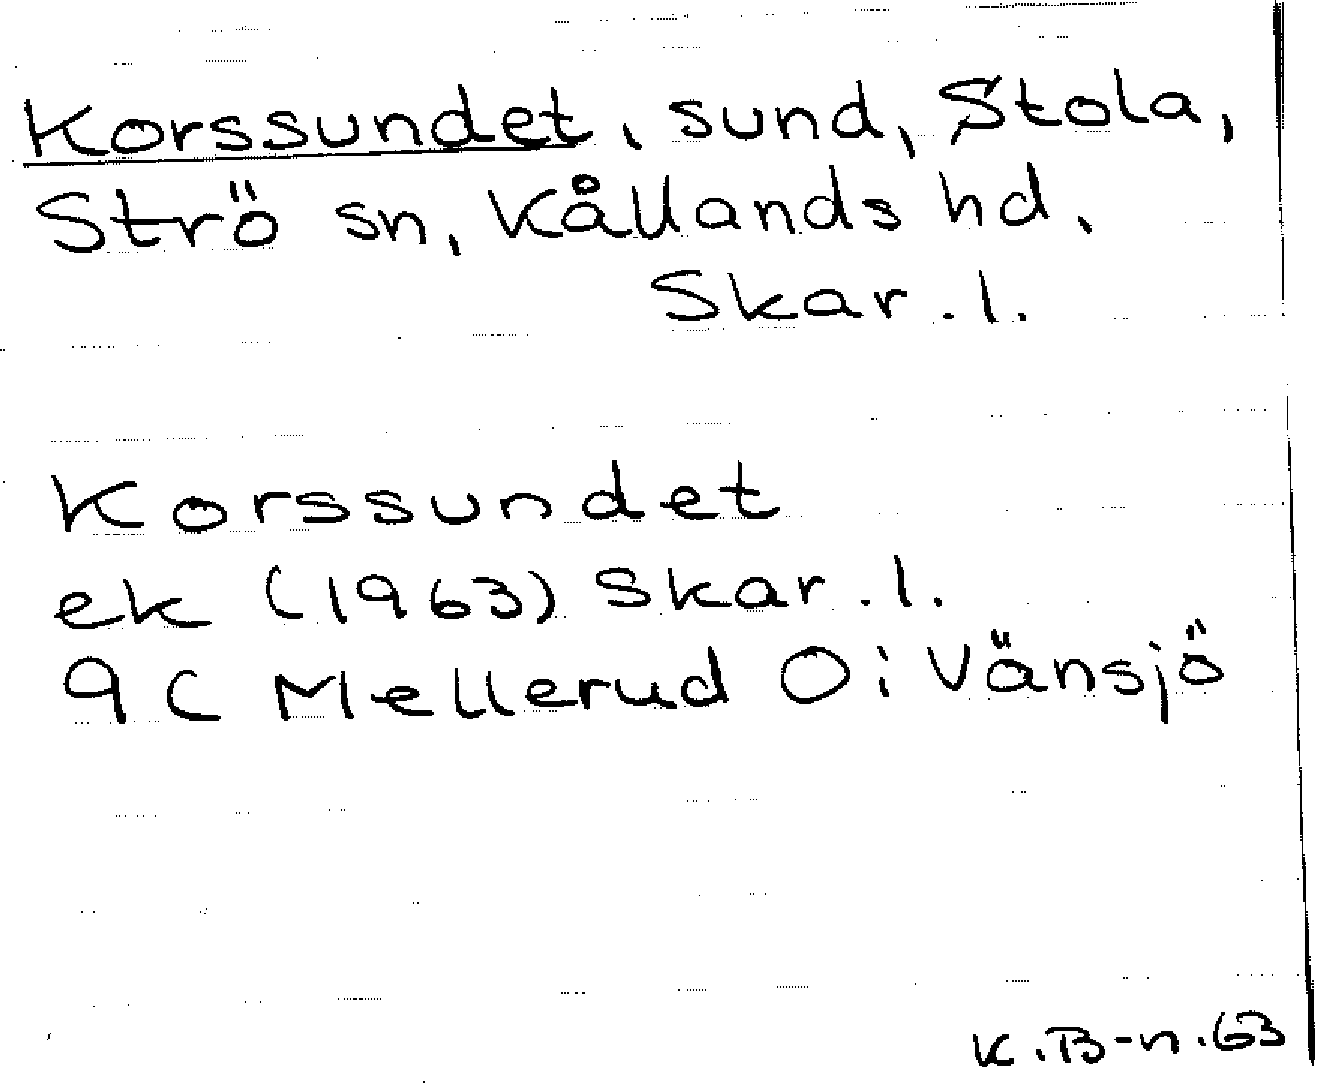 Korssundet, sund, Stola,
Strö sn, Kållands hd,
Skar. l.
Korssundet
ek (1963) Skar. l.
9 C Mellerud O; Vänsjö
K.B-n.63